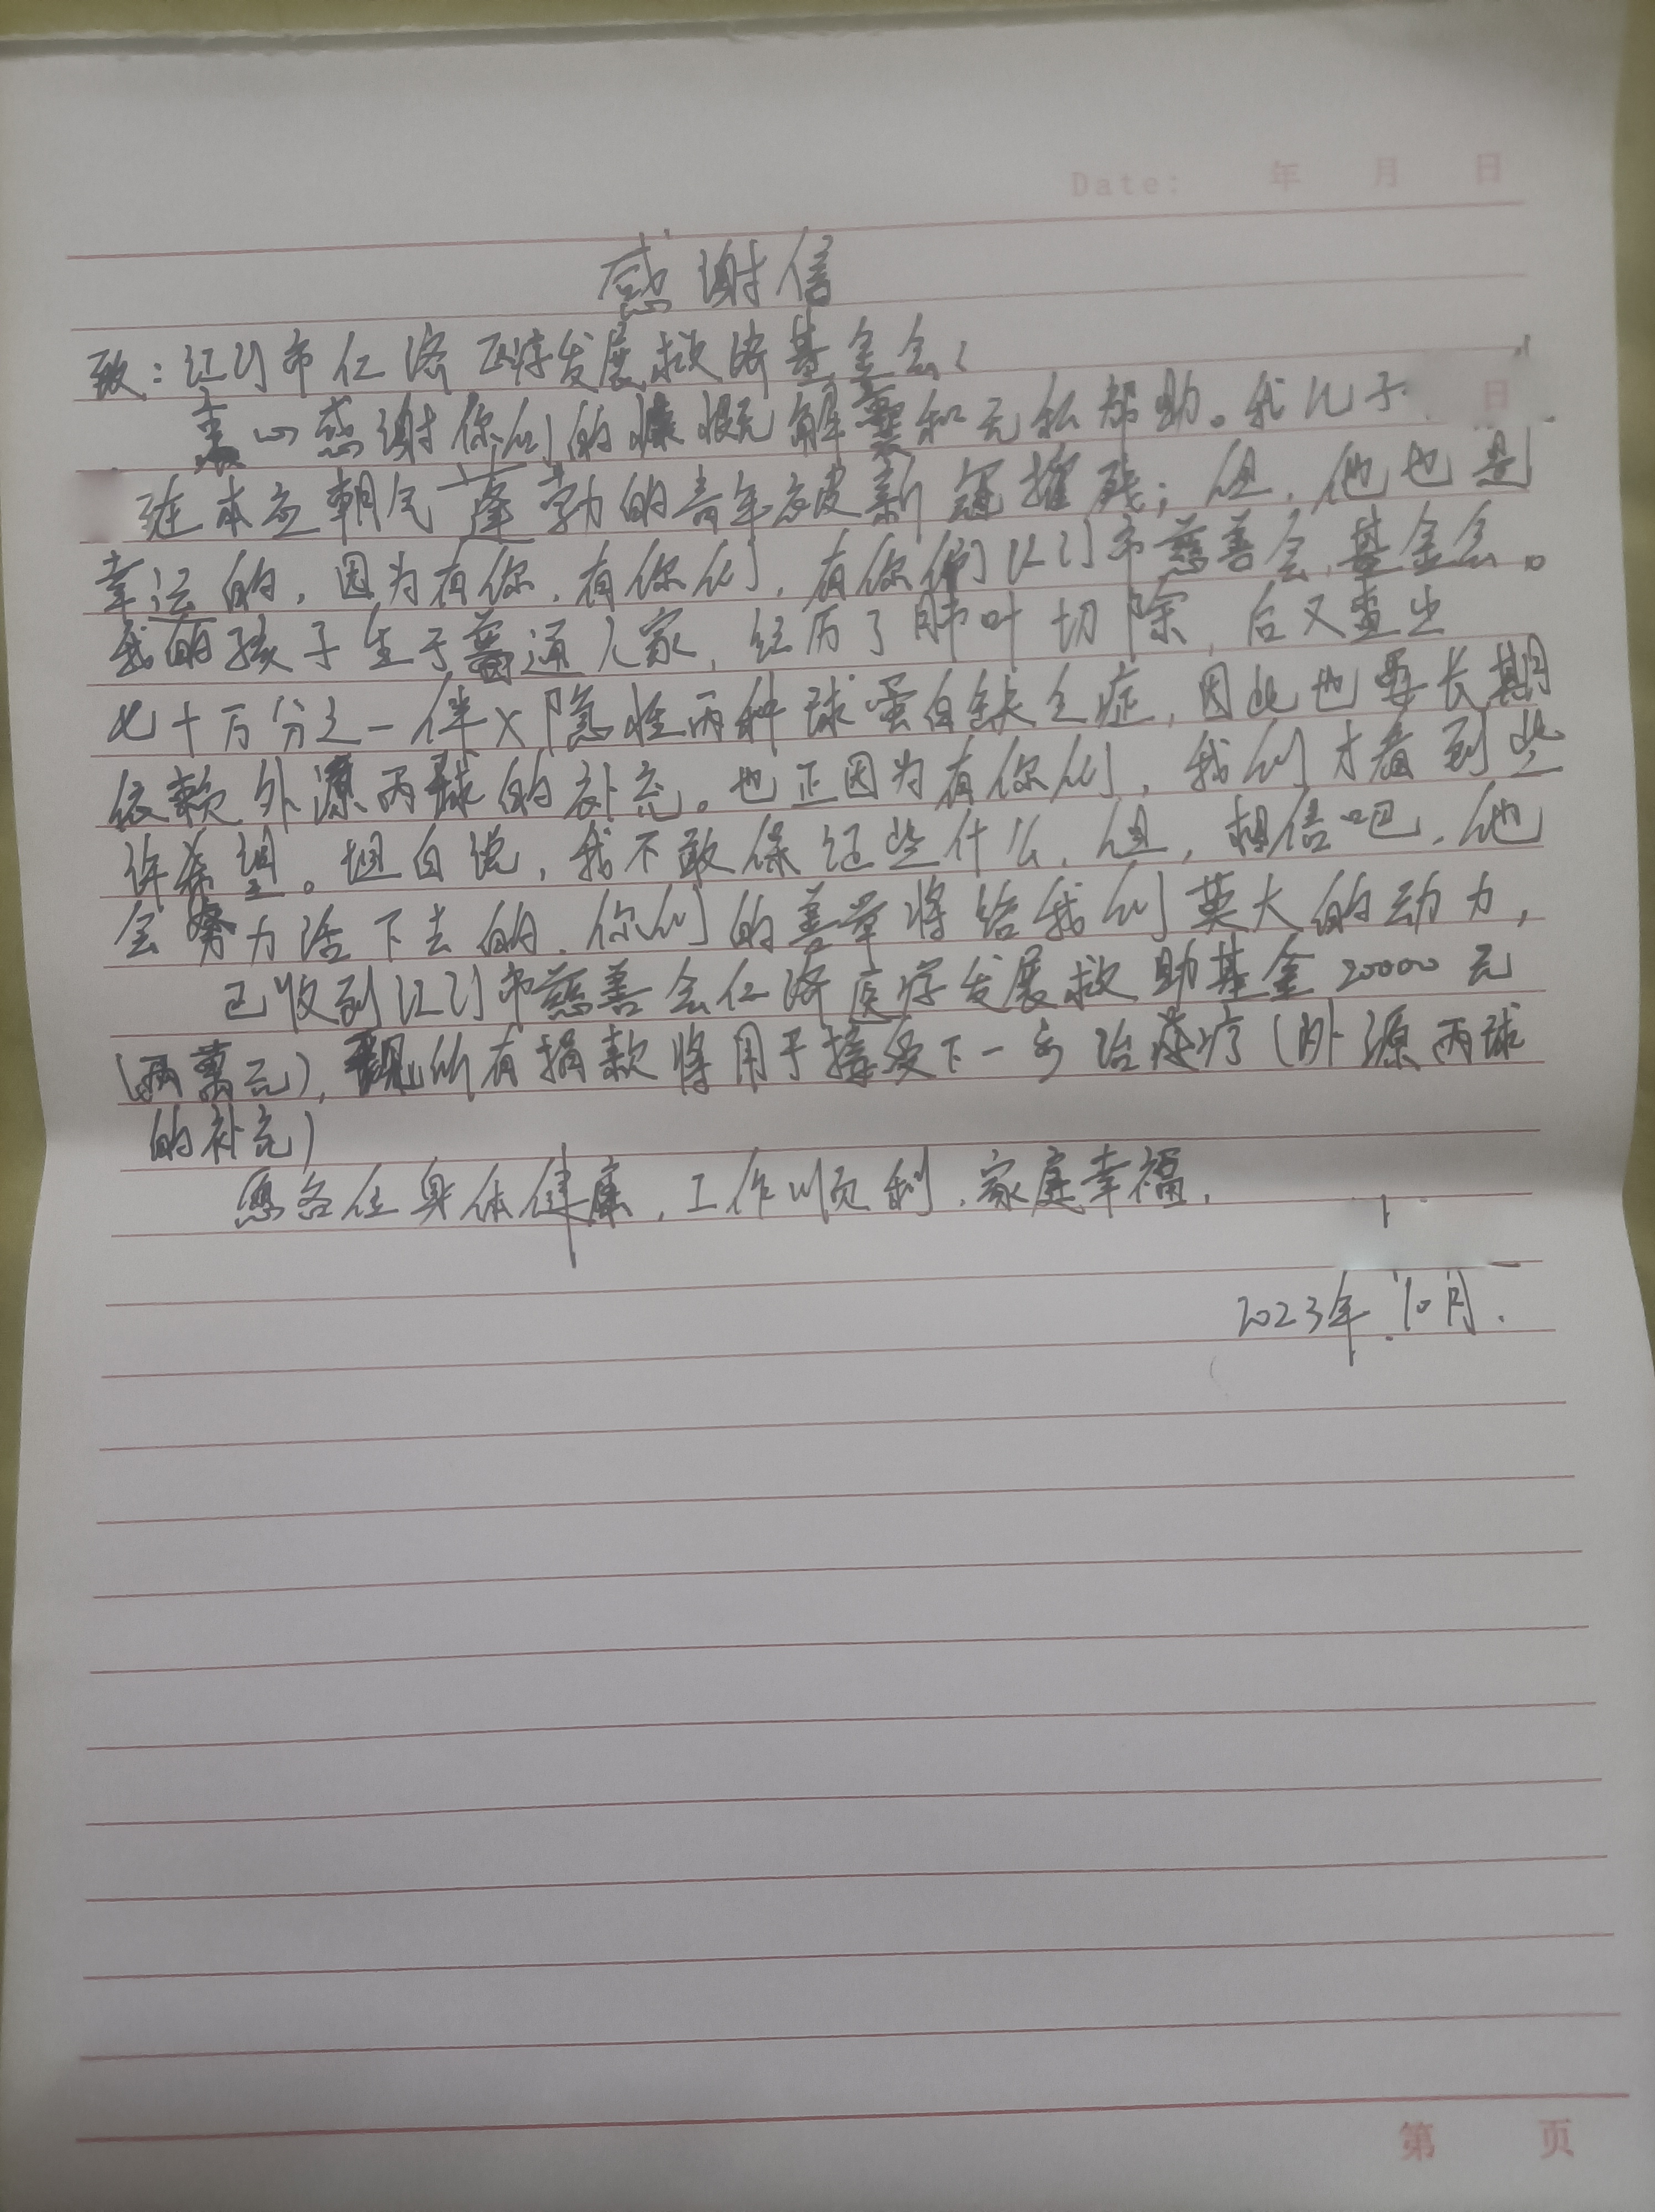 Date: 年 月 日
感谢信
致:江门市仁济医疗发展救济基金会:
衷心感谢你们的慷慨解囊和无私帮助。我儿子
日
在本应朝气蓬勃的青年被新冠摧残;但,他也是
幸运的,因为有你,有你们,有你们江门市慈善会,基金会。
我的孩子生于普通人家,经历了肺叶切除,后又查出
七十万分之一伴X隐性丙种球蛋白缺乏症,因此也要长期
依赖外源丙球的补充。也正因为有你们,我们才看到些
许希望。坦白说,我不敢保证些什么,但,相信吧,他
会努力活下去的,你们的善举将给我们莫大的动力,
已收到江门市慈善会仁济医疗发展救助基金20000元
(两萬元),所有捐款将用于接受下一步治疗(外源丙球
的补充)
愿各位身体健康,工作顺利,家庭幸福,
2023年10月.
第 页